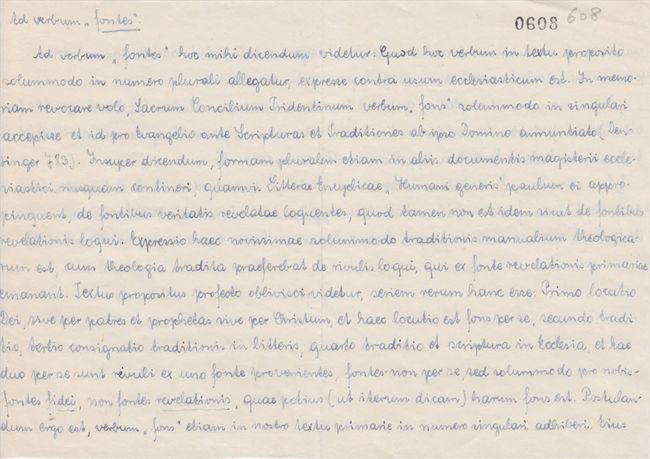 Ad verbum „fontes“.
0608 608
Ad verbum „fontes“ hoc mihi dicendum videtur: Quod hoc verbum in textu proposito
solummodo in numero plurali allegatur, expresse contra usum ecclesiasticum est. In memo-
riam revocare volo, Sacrum Concilium Tridentinum verbum „fons“ solummodo in singulari
accepisse et id pro Evangelio ante Scripturas et Traditiones ab ipso Domino annuntiato (Den-
zinger 783). Insuper dicendum, formam pluralem etiam in aliis documentis magisterii eccle-
siastici nusquam contineri, quamvis Litterae Encyclicae „Humani generis“ paullum ei appro-
pinquent, de fontibus veritatis revelatae loquentes, quod tamen non est idem sicut de fontibus
revelationis loqui. Expressio haec novissimae solummodo traditionis manualium theologica-
rum est, cum theologia tradita praeferebat de rivulis loqui, qui ex fonte revelationis primariae
emanant. Textus propositus profecto oblivisci videtur, seriem rerum hanc esse: Primo locutio
Dei, sive per patres et prophetas sive per Christum, et haec locutio est fons per se, secundo tradi-
tio, tertio consignatio traditionis in litteris, quarto traditio et scriptura in Ecclesia, et hae
duo per se sunt rivuli ex uno fonte provenientes, fontes non per se, sed solummodo pro nobis-
fontes fidei, non fontes revelationis, quae potius (ut iterum dicam) harum fons est. Postulan-
dum ergo est, verbum „fons“ etiam in nostro textu primarie in numero singulari adhiberi. Eius